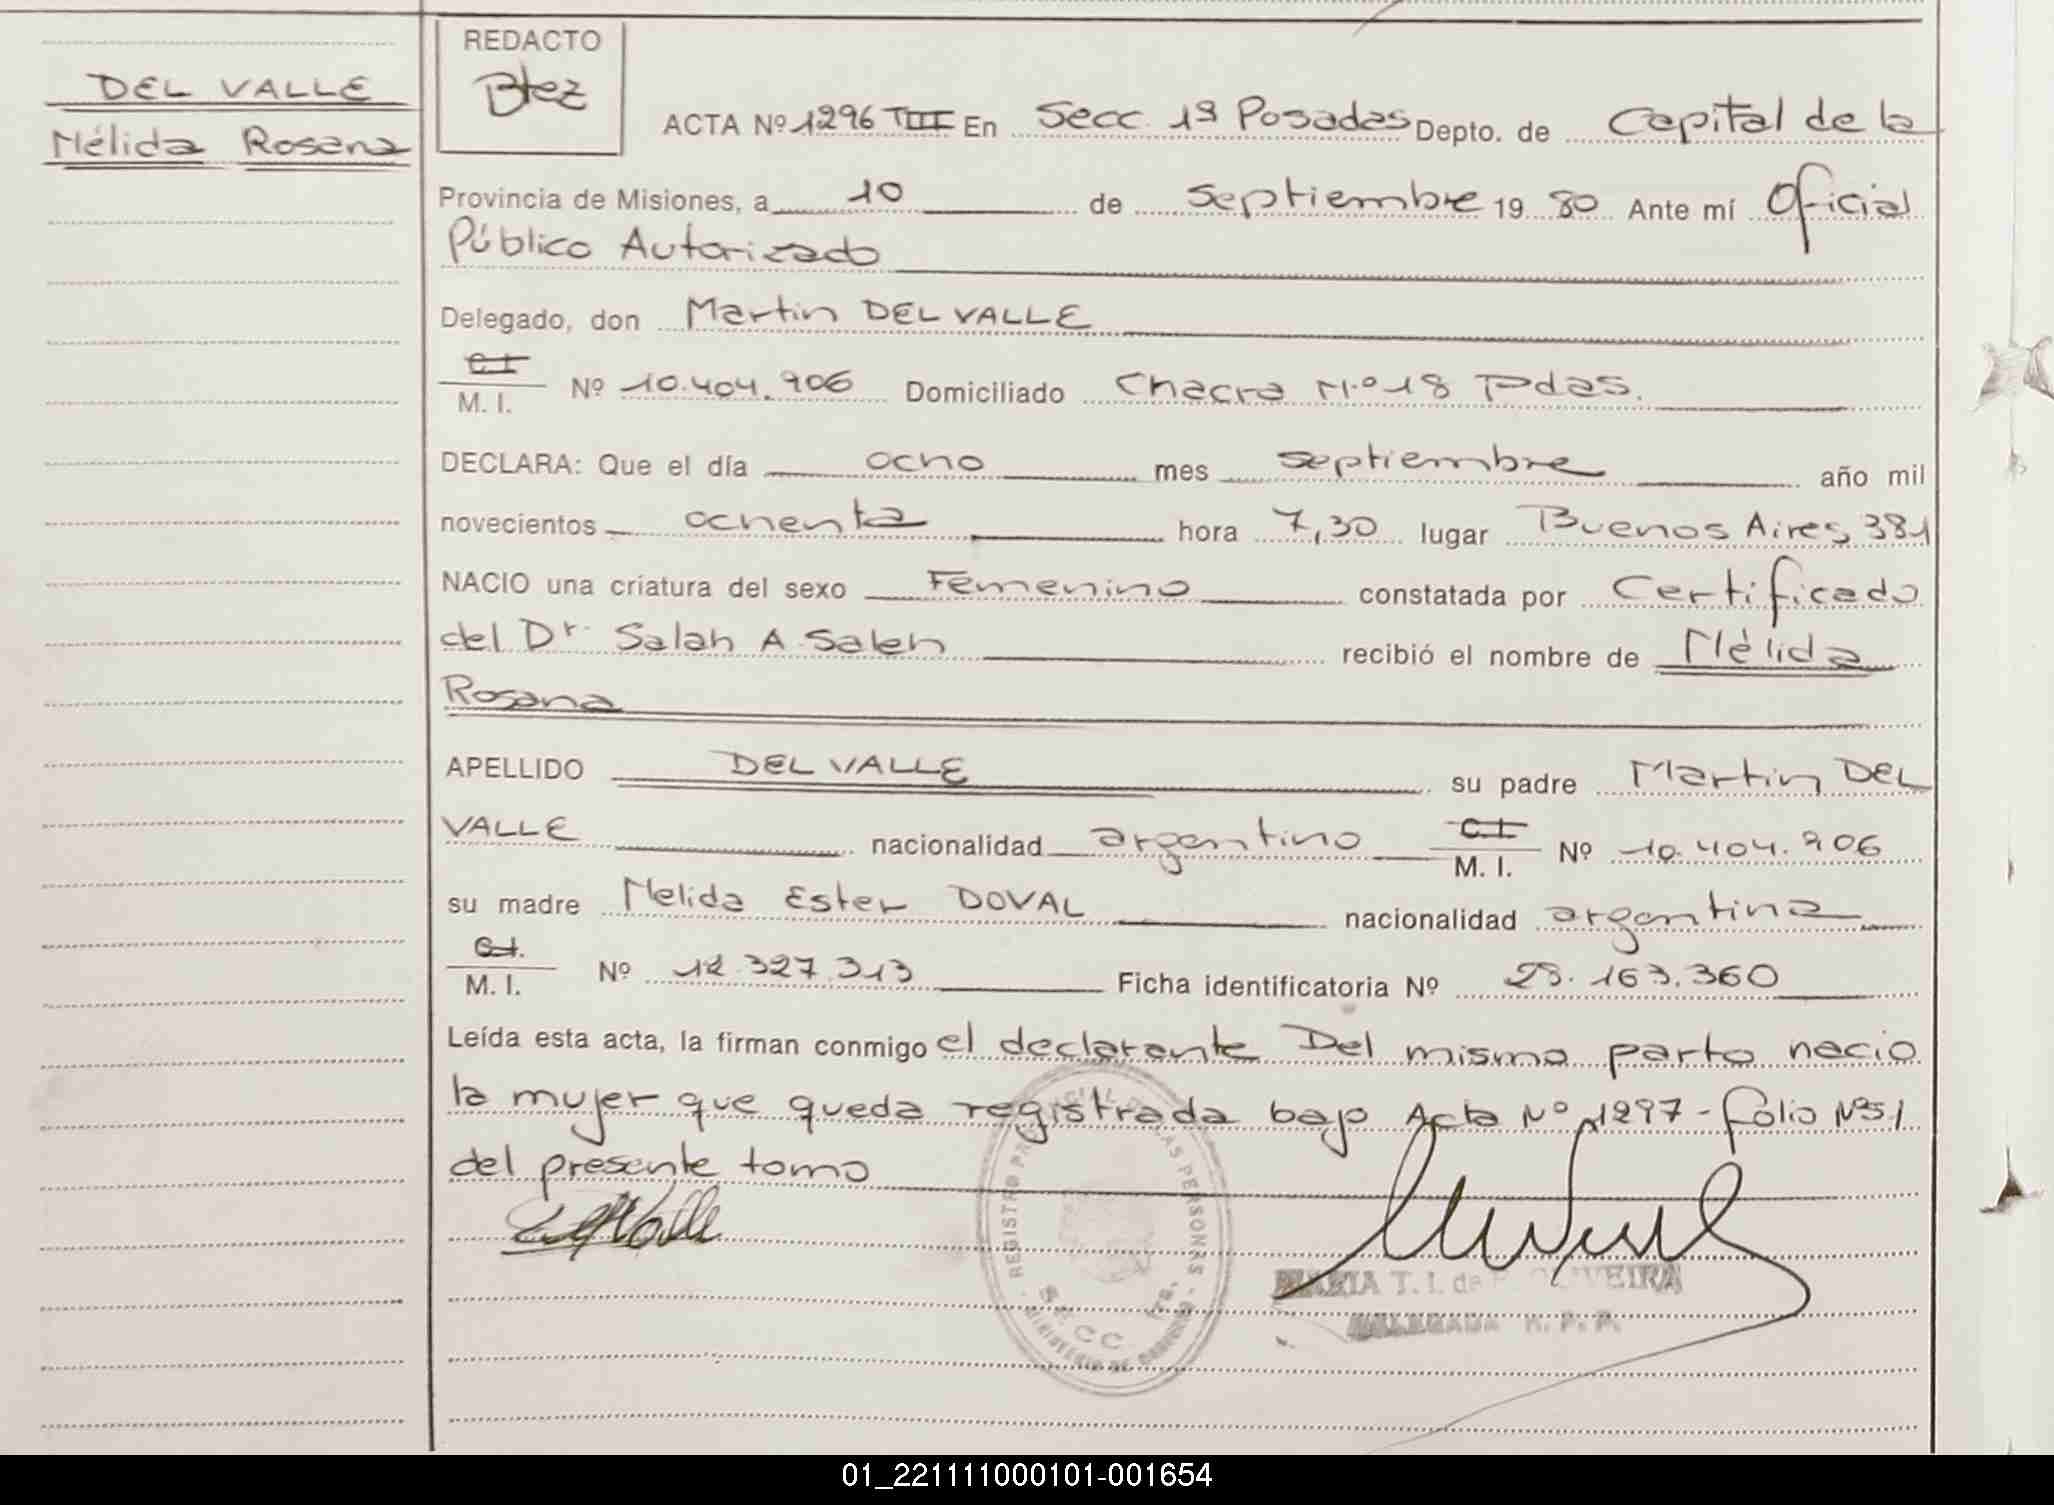 DEL VALLE
Mélida Rosana
REDACTO
Btez
ACTA Nº 1296 TIII En Secc. 1ª Posadas Depto. de Capital de la
Provincia de Misiones, a 10 de septiembre 19 80 Ante mí Oficial
Público Autorizado
Delegado, don Martin DEL VALLE
C.I.
M. I. Nº 10.404.906 Domiciliado Chacra N.º 18 Pdas.
DECLARA: Que el día ocho mes septiembre año mil
novecientos ochenta hora 7,30 lugar Buenos Aires 381
NACIO una criatura del sexo Femenino constatada por Certificado
del Dr. Salah A. Saleh recibió el nombre de Mélida
Rosana
APELLIDO DEL VALLE su padre Martin DEL
VALLE nacionalidad argentino C.I.
M. I. Nº 10.404.906
su madre Melida Ester DOVAL nacionalidad argentina
C.I.
M. I. Nº 12.327.313 Ficha identificatoria Nº 28.163.360
Leída esta acta, la firman conmigo el declarante Del mismo parto nacio
la mujer que queda registrada bajo Acta Nº 1297 - folio Nº 51
del presente tomo
REGISTRO PROVINCIAL DE LAS PERSONAS
SECC 1ra.
MINISTERIO DE GOBIERNO
MARIA T. I. de OLIVEIRA
DELEGADA R. P. P.
01_221111000101-001654